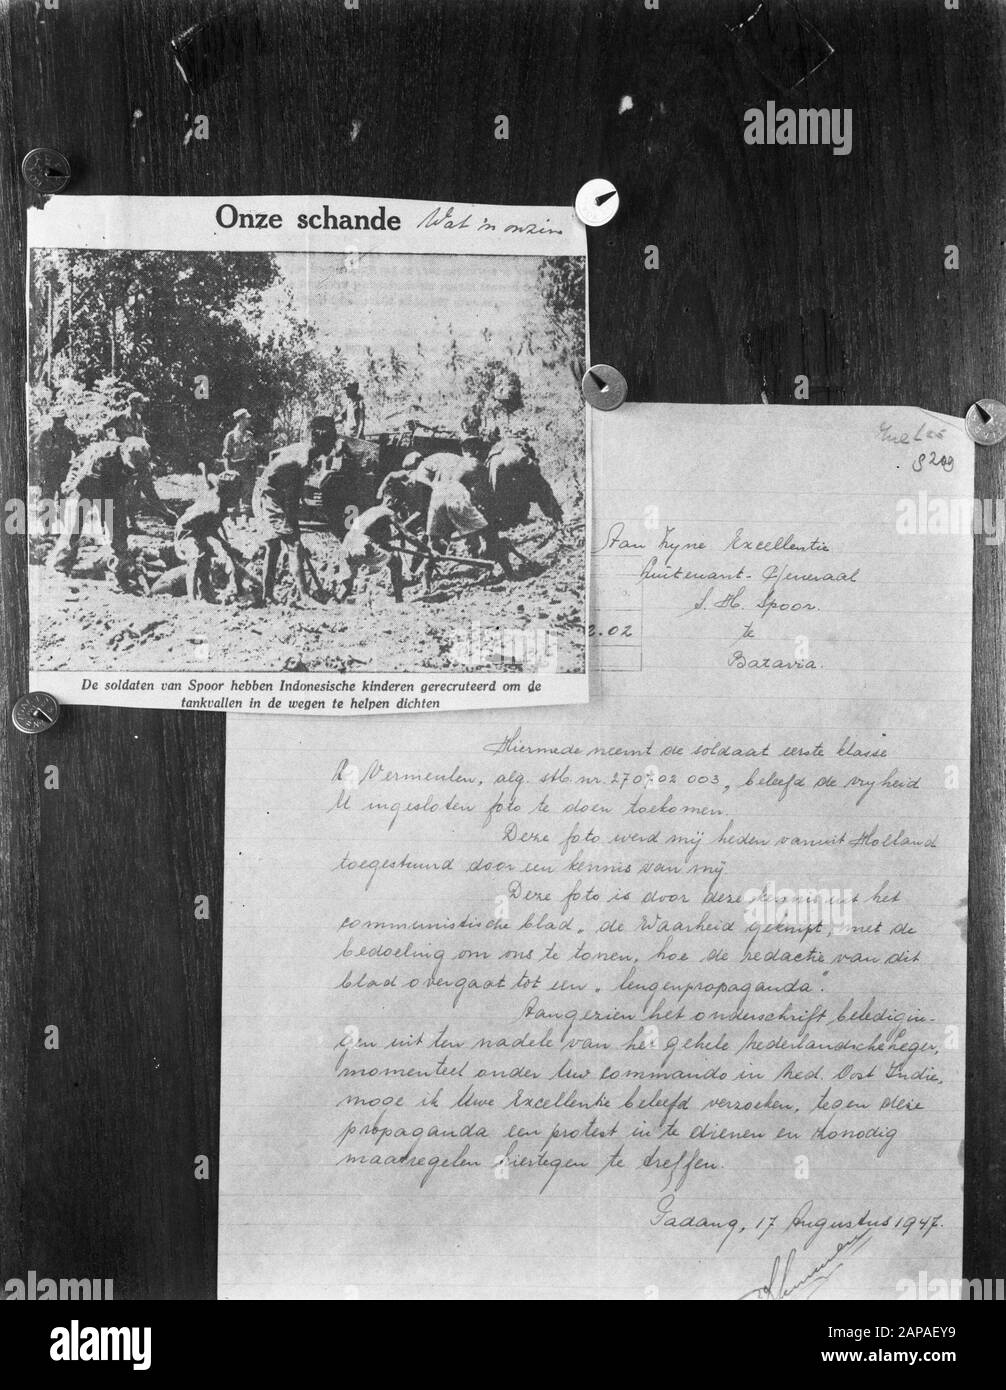 Onze schande Wat 'n onzin
De soldaten van Spoor hebben Indonesische kinderen gerecruteerd om de
tankvallen in de wegen te helpen dichten
8209
Aan Zyne Excellentie
Luitenant-Generaal
S. H. Spoor.
te
2.02
Batavia.
Hiermede neemt de soldaat eerste klasse
R Vermeulen, alg. stb. nr. 270702003, beleefd de vryheid
U ingesloten foto te doen toekomen.
Deze foto werd mij heden vanuit Holland
toegestuurd door een kennis van mij
Deze foto is door deze kennis uit het
communistische blad „de Waarheid geknipt, met de
bedoeling om ons te tonen, hoe de redactie van dit
blad overgaat tot een „leugenpropaganda".
Aangezien het onderschrift beledigin-
gen uit ten nadele van het gehele Nederlandsche Leger,
momenteel onder Uw commando in Ned. Oost Indie,
moge ik Uwe Excellentie beleefd verzoeken, tegen deze
propaganda een protest in te dienen en zonodig
maatregelen hiertegen te treffen.
Padang, 17 Augustus 1947.
alamy
Image ID: 2APAEY9
www.alamy.com